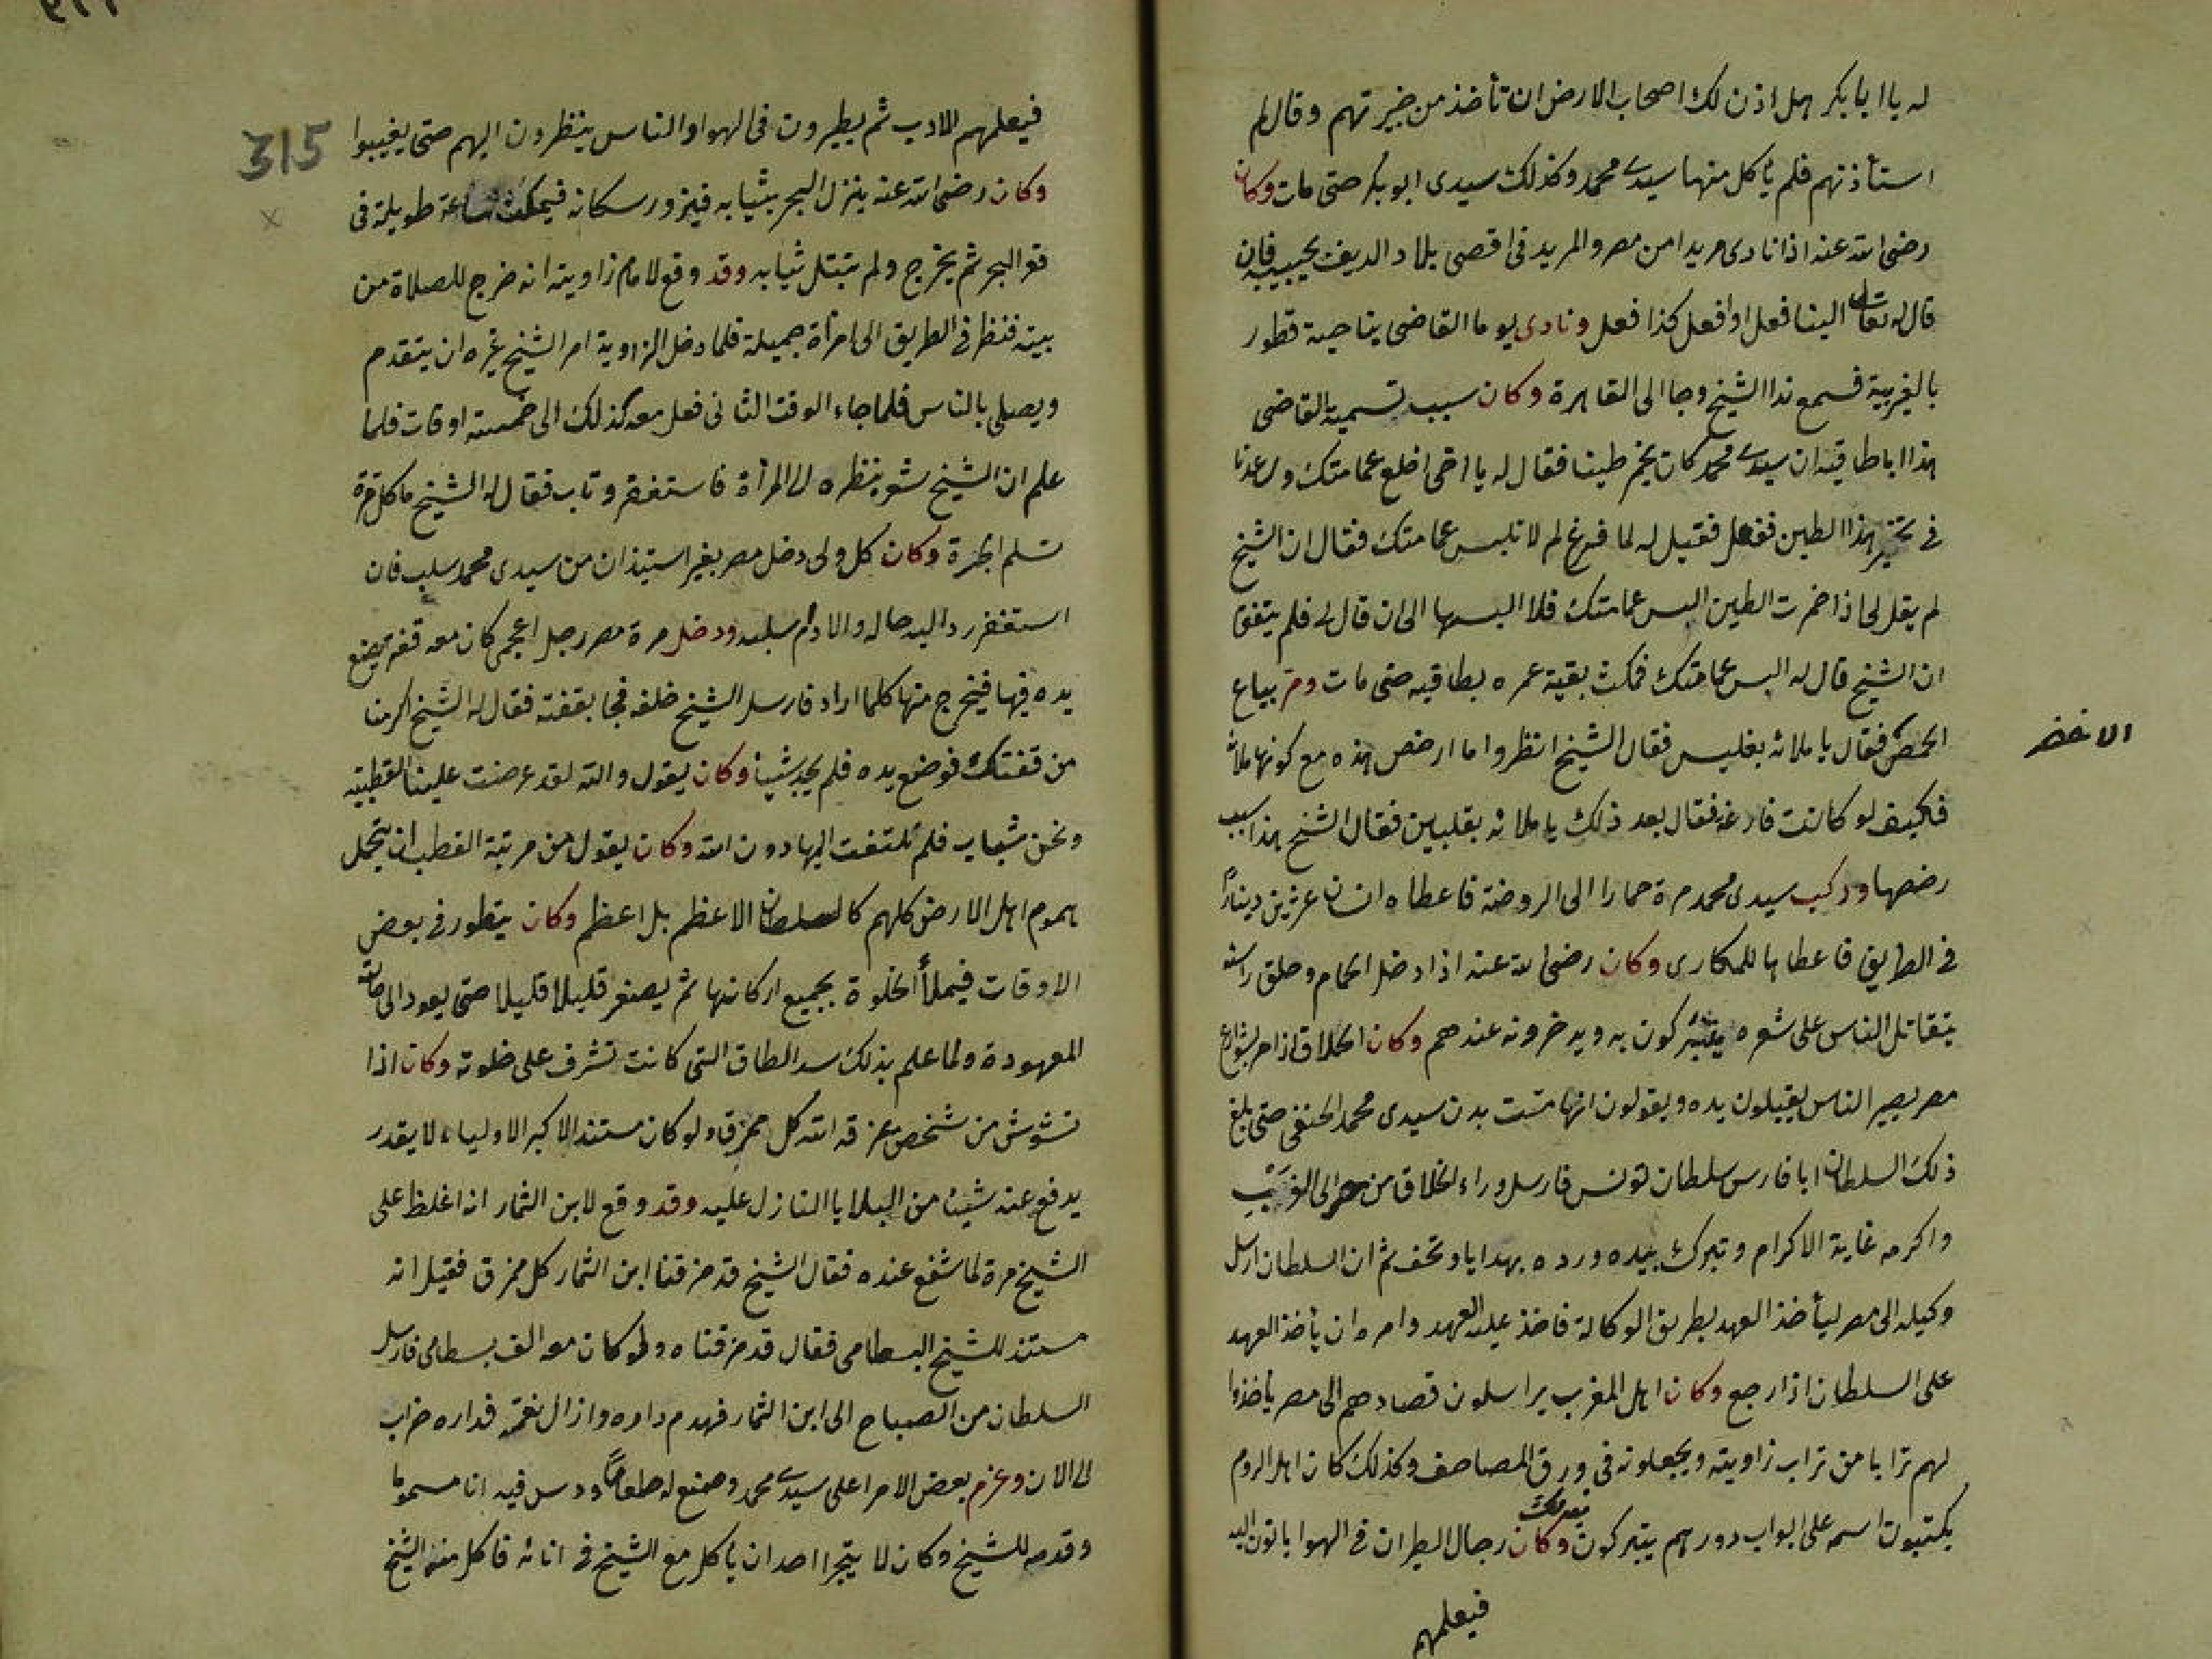 له يا ابا بكر هل اذن لك اصحاب الارض ان تأخذ من خبيرتهم وقال لم
استأذنهم فلم يأكل منها سيدي محمد وكذلك سيدى ابو بكر حتى مات وكان
رضى الله عنه اذا نادى مريدا من مصر والمريد فى اقصى بلاد الريف يجيبه فان
قال له تعال الينا فعل او افعل كذا فعل ونادى يوما القاضى بناحية قطور
بالغربية فسمع ندا الشيخ وجا الى القاهرة وكان سبب تسمية القاضى
هذا اباطاقية ان سيدي محمد كان يخمر طينا فقال له يا اخى اخلع عمامتك وساعدنا
فى تخمير هذا الطين ففعل فقيل له لما فرغ لم لا تلبس عمامتك فقال ان الشيخ
لم يقل لى اذا خمرت الطين البس عمامتك فلا البسها الى ان قال لى فلم يتفق
ان الشيخ قال له البس عمامتك فمكث بقية عمره بطاقيه حتى مات ومر ببياع
الحمص فقال يا ملانه بفليس فقال الشيخ انظروا ما ارخص هذه مع كونها ملانه
الاخضر
فكيف لو كانت فارغه فقال بعد ذلك يا ملانه بفلسين فقال الشيخ هذا سبب
رخصها وركب سيدى محمد مرة حمارا الى الروضة فاعطاه انسان عشرين دينارا
فى الطريق فاعطاها للمكارى وكان رضى الله عنه اذا دخل الحمام وحلق راسه
يتقاتل الناس على شعره يتبركون به ويدخرونه عندهم وكان الحلاق اذا مر بشوارع
مصر يصير الناس يقبلون يده ويقولون انها مست بدن سيدى محمد الحنفى حتى بلغ
ذلك السلطان ابا فارس سلطان تونس فارسل وراء الحلاق من مصر الى الغرب
واكرمه غاية الاكرام وتبرك بيده ورده بهدايا وتحف ثم ان السلطان ارسل
وكيله الى مصر ليأخذ العهد بطريق الوكالة فاخذ عليه العهد وامره ان يأخذ العهد
على السلطان اذا رجع وكان اهل المغرب يراسلون قصادهم الى مصر ياخذوا
لهم ترابا من تراب زاويته ويجعلونه فى ورق المصاحف وكذلك كان اهل الروم
يكتبون اسمه على ابواب دورهم يتبركون بذلك وكان رجال الطيران فى الهوا ياتون اليه
فيعلمهم
315
فيعلمهم الادب ثم يطيرون فى الهوا والناس ينظرون اليهم حتى يغيبوا
وكان رضى الله عنه ينزل البحر بثيابه فيزور سكانه فيمكث ساعة طويلة فى
قعر البحر ثم يخرج ولم تبتل ثيابه وقد وقع لامام زاويته انه خرج للصلاة من
بيته فنظر فى الطريق الى امرأة جميلة فلما دخل الزاوية امر الشيخ غيره ان يتقدم
ويصلى بالناس فلما جاء الوقت الثانى فعل معه كذلك الى خمسة اوقات فلما
علم ان الشيخ شعر بنظره الى المرأة فاستغفر وتاب فقال له الشيخ ما كل مرة
تسلم الجرة وكان كل ولى دخل مصر بغير استيذان من سيدى محمد سلب فان
استغفر رد اليه حاله والا دام سلبه ودخل مرة مصر رجل اعجمى كان معه قفه يضع
يده فيها فيخرج منها كلما اراد فارسل الشيخ خلفه فجا بقفته فقال له الشيخ اكرمنا
من قفتك فوضع يده فلم يجد شيا وكان يقول والله لقد عرضت علينا القطبية
ونحن شباب فلم نلتفت اليها دون الله وكان يقول من مرتبة القطب ان يتحمل
هموم اهل الارض كلهم كالسلطان الاعظم بل اعظم وكان يتطور فى بعض
الاوقات فيملأ الخلوة بجميع اركانها ثم يصغر قليلا قليلا حتى يعود الى حالته
المعهودة ولما علم بذلك سد الطاق التى كانت تشرف على خلوته وكان اذا
تشوش من شخص مزقه الله كل ممزق ولو كان مستندا لاكبر الاولياء لا يقدر
يدفع عنه شيئا من البلايا النازل عليه وقد وقع لابن الثمار انه اغلظ على
الشيخ مرة لما شفع عنده فقال الشيخ قد مزقنا ابن الثمار كل ممزق فقيل انه
مستند للشيخ البسطامى فقال قد مزقناه ولو كان معه الف بسطامى فارسل
السلطان من الصباح الى ابن الثمار فهدم داره وازال نعمته فداره خراب
الى الان وعزم بعض الامرا على سيدي محمد وصنع له طعاما ودس فيه انا مسموما
وقدمه للشيخ وكان لا يتجرا احد ان يأكل مع الشيخ فى انائه فاكل منه الشيخ